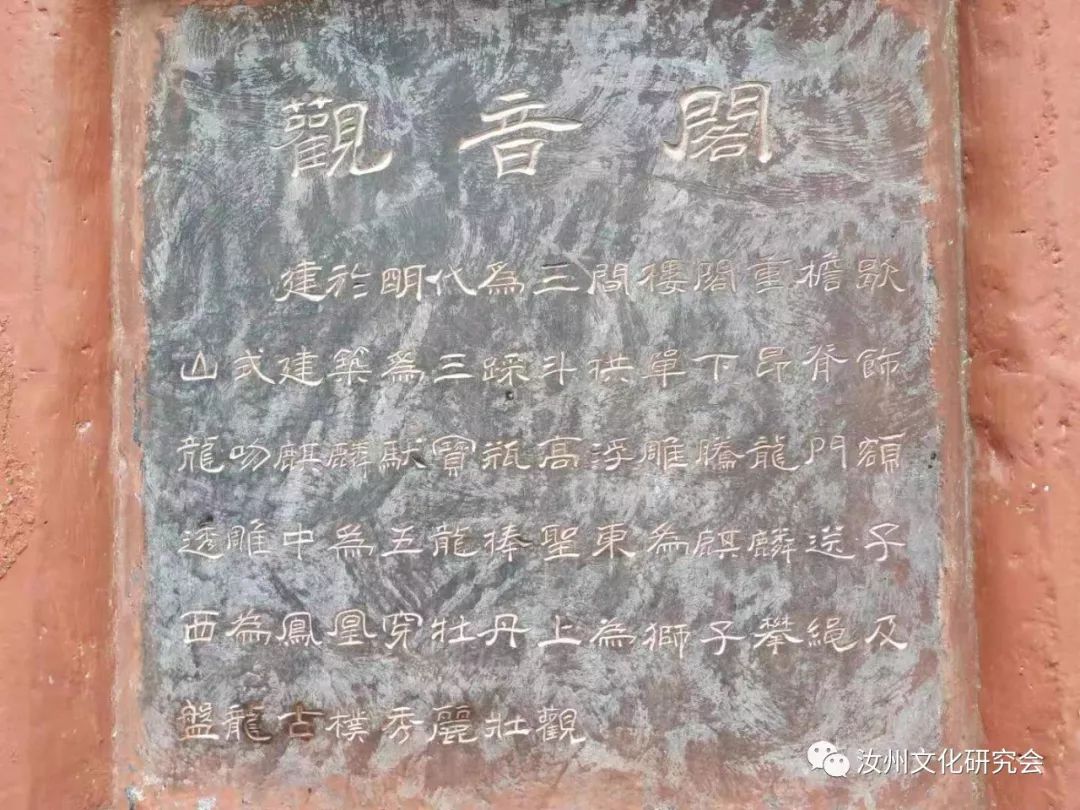 觀音閣
建於明代為三間樓閣重檐歇
山式建築為三踩斗拱單下昂脊飾
龍吻麒麟馱寶瓶高浮雕騰龍門額
透雕中為五龍捧聖東為麒麟送子
西為鳳凰穿牡丹上為獅子攀繩及
盤龍古樸秀麗壯觀
汝州文化研究会